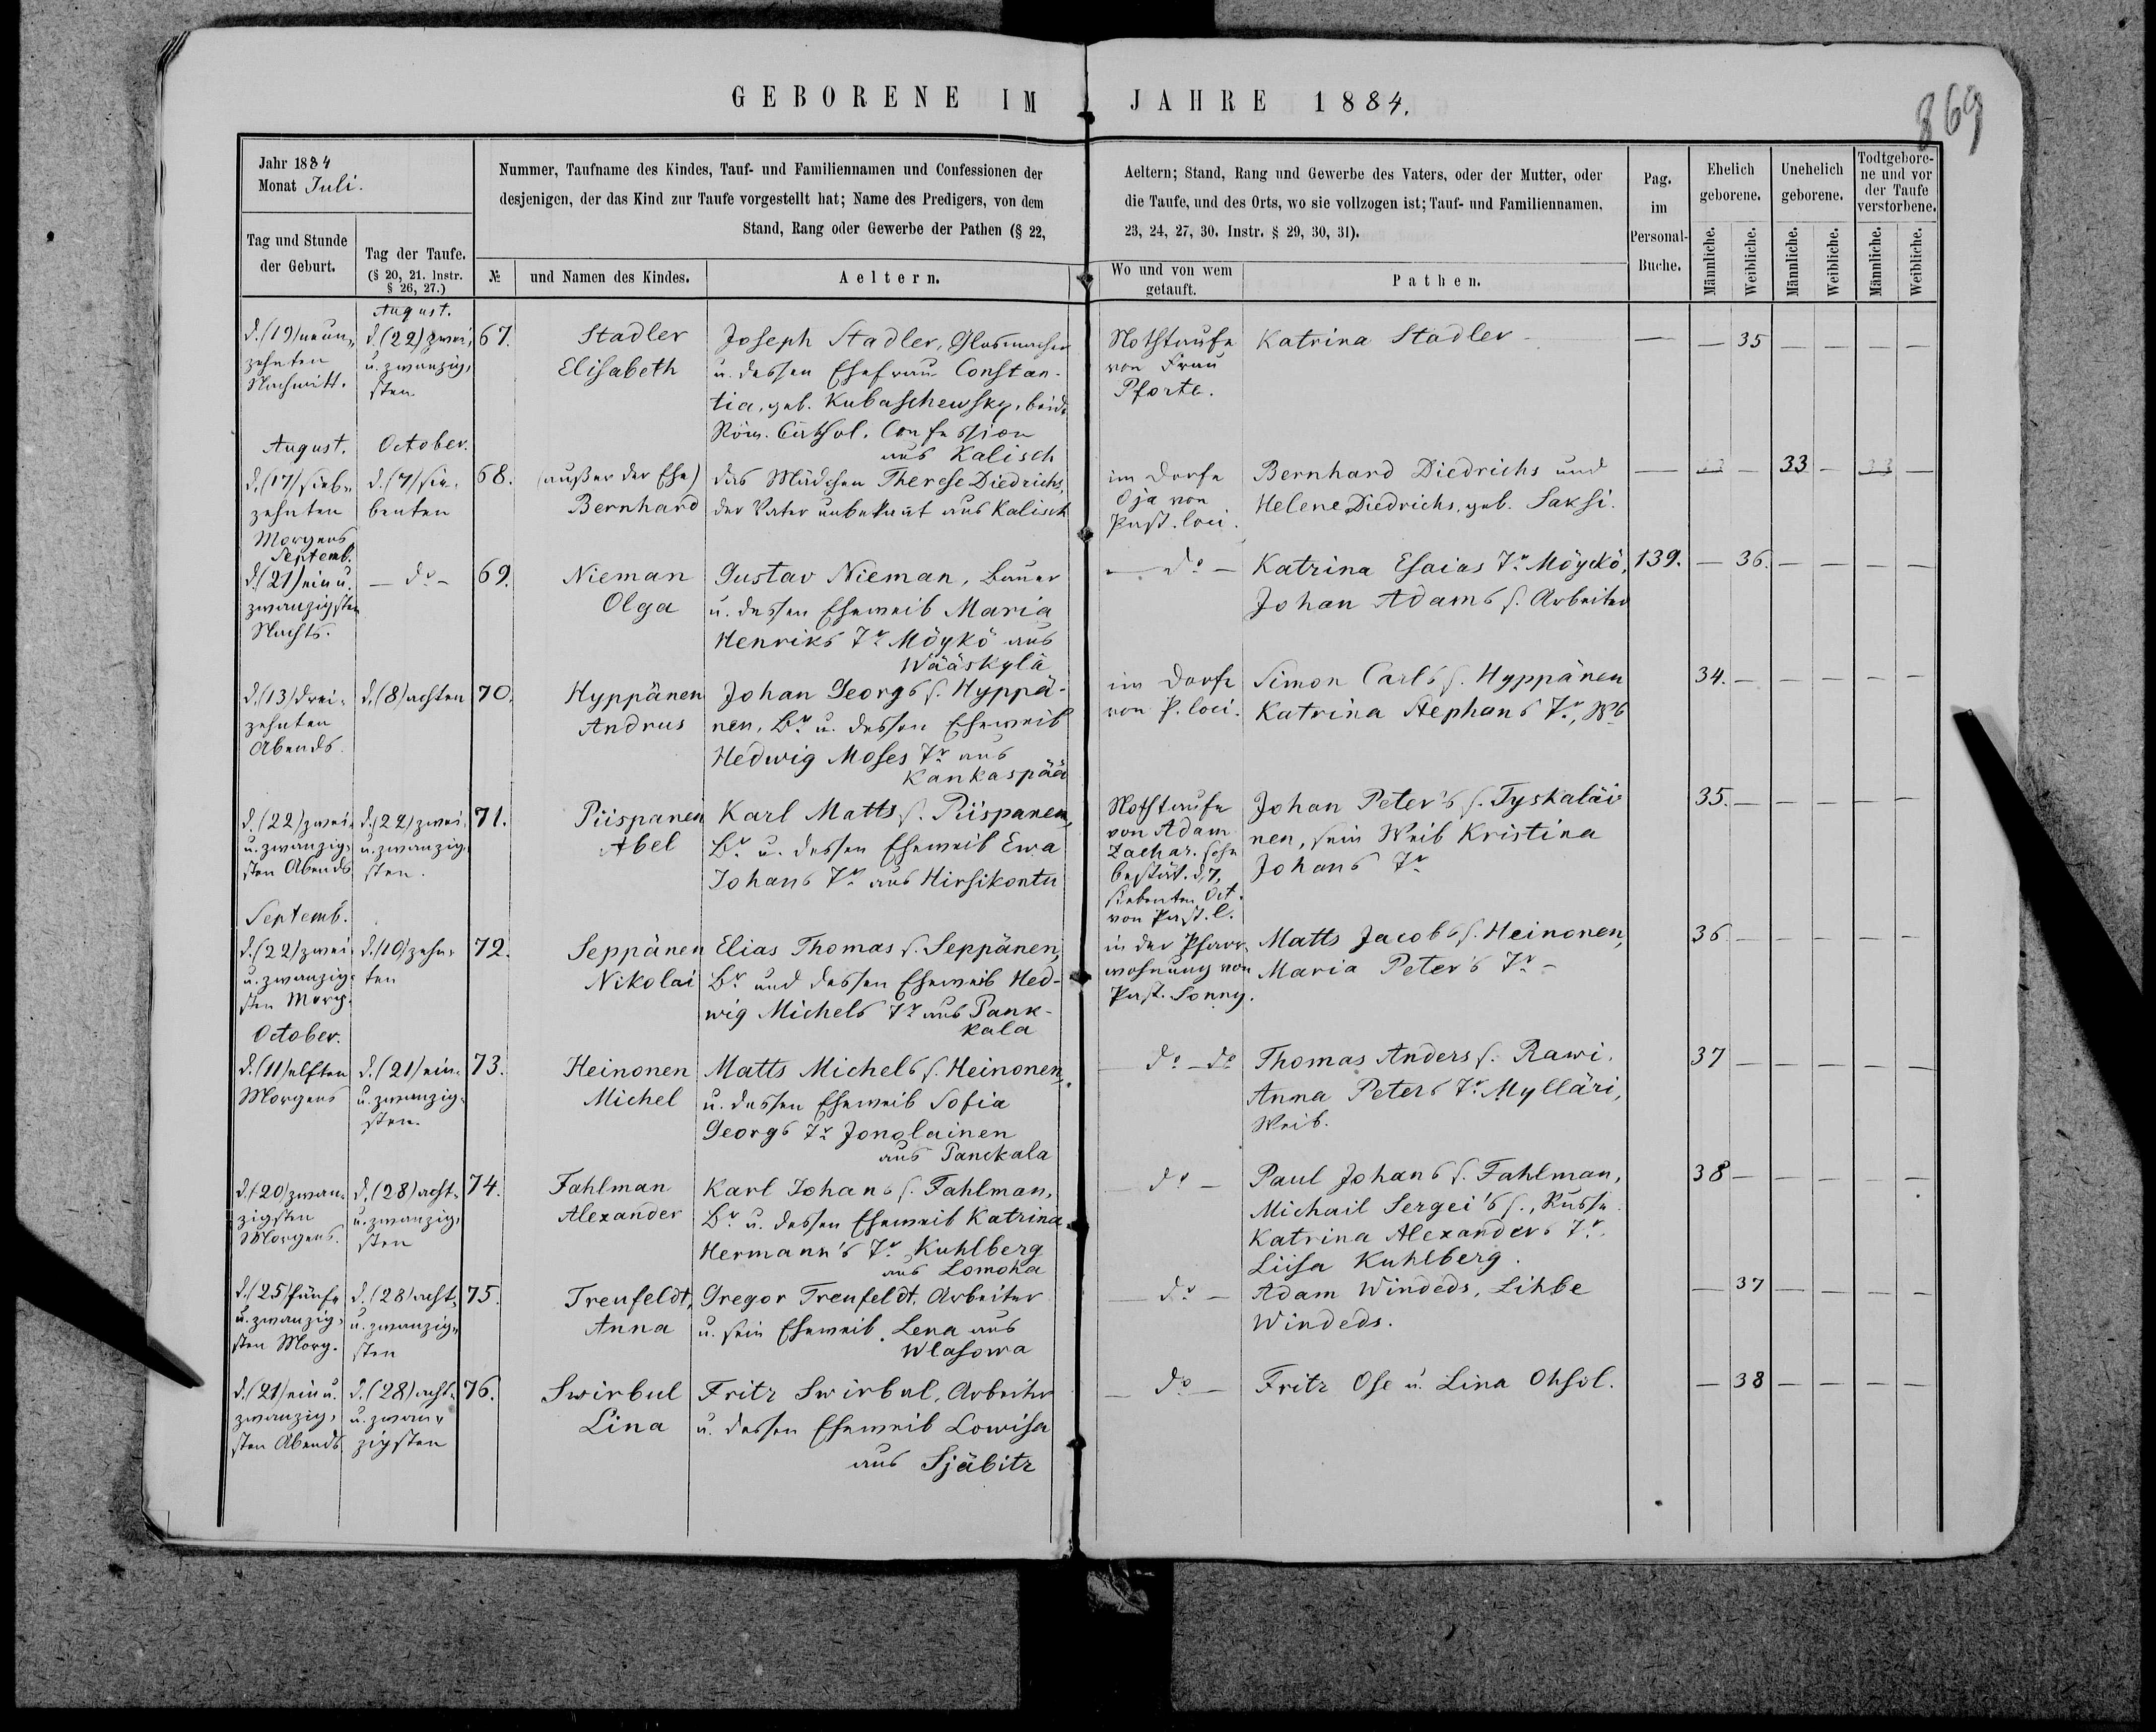 GEBORENE IM JAHRE 1884.
869
Jahr 1884
Monat Juli.
Nummer, Taufname des Kindes, Tauf- und Familiennamen und Confessionen der
desjenigen, der das Kind zur Taufe vorgestellt hat; Name des Predigers, von dem
Stand, Rang oder Gewerbe der Pathen (§ 22,
Aeltern; Stand, Rang und Gewerbe des Vaters, oder der Mutter, oder
die Taufe, und des Orts, wo sie vollzogen ist; Tauf- und Familiennamen,
23, 24, 27, 30. Instr. § 29, 30, 31).
Pag.
im
Personal-
Buche.
Ehelich
geborene.
Unehelich
geborene.
Todtgebore-
ne und vor
der Taufe
verstorbene.
Tag und Stunde
der Geburt.
Tag der Taufe.
(§ 20, 21. Instr.
§ 26, 27.)
№
und Namen des Kindes.
Aeltern.
Wo und von wem
getauft.
Pathen.
Männliche.
Weibliche.
Männliche.
Weibliche.
Männliche.
Weibliche.
d. (19) neun-
zehnten
Nachmitt.
August.
d. (22) zwei
u. zwanzig-
sten
67.
Stadler
Elisabeth
Joseph Stadler, Glasmacher
u. dessen Ehefrau Constan-
tia, geb. Kubaschewsky, beide
Röm. Cathol. Confession
aus Kalisch
Nothtaufe
von Frau
Pforte.
Katrina Stadler
— — 35 — — — —
August.
d. (17) sieb-
zehnten
Morgens
October.
d. (7) sie-
benten
68.
(außer der Ehe)
Bernhard
das Mädchen Therese Diedrichs,
der Vater unbekannt aus Kalisch
im Dorfe
Oja von
Past. loci.
Bernhard Diedrichs und
Helene Diedrichs, geb. Saksi.
— 33 — 33 — 33 —
Septemb.
d. (21) ein u.
zwanzigsten
Nachts.
— do —
69.
Nieman
Olga
Gustav Nieman, Bauer
u. dessen Eheweib Maria
Henriks Tr Möykö aus
Wääskylä
— do —
Katrina Esaias Tr Möykö,
Johan Adams s. Arbeiter
139. — 36. — — — —
d. (13) drei-
zehnten
Abends.
d. (8) achten
70.
Hyppänen
Andrus
Johan Georgs s. Hyppä-
nen, Br u. dessen Eheweib
Hedwig Moses Tr aus
Kankaspää
im Dorfe
von P. loci.
Simon Carls s. Hyppänen
Katrina Stephans Tr, Wb
34. — — — — —
d. (22) zwei
u. zwanzig-
sten Abends
d. (22) zwei
u. zwanzig-
sten.
71.
Piispanen
Abel
Karl Matts s. Piispanen,
Br u. dessen Eheweib Ewa
Johans Tr aus Hirsikontu
Nothtaufe
von Adam
Zachar. sohn
bestät. d. 7,
siebenten Oct.
von Past. l.
Johan Peter's s. Tyskaläi-
nen, sein Weib Kristina
Johans Tr
35. — — — — —
Septemb.
d. (22) zwei
u. zwanzig-
sten Morg.
d. (10) zehn-
ten
72.
Seppänen
Nikolai
Elias Thomas s. Seppänen,
Br und dessen Eheweib Hed-
wig Michels Tr aus Pank-
kala
in der Pfarr-
wohnung von
Past. Sonny.
Matts Jacobs s. Heinonen,
Maria Peter's Tr —
36 — — — — —
October.
d. (11) elften
Morgens
d. (21) ein
u. zwanzig-
sten.
73.
Heinonen
Michel
Matts Michels s. Heinonen,
u. dessen Eheweib Sofia
Georgs Tr Jonolainen
aus Panckala
— do — do
Thomas Anders s. Rawi.
Anna Peters Tr Mylläri,
Weib.
37 — — — — —
d. (20) zwan-
zigsten
Morgens.
d. (28) acht
u. zwanzig-
sten
74.
Fahlman
Alexander
Karl Johans s. Fahlman,
Br u. dessen Eheweib Katrina
Hermann's Tr Kuhlberg
aus Lomoha
do —
Paul Johans s. Fahlman,
Michail Sergei's s., Russe
Katrina Alexanders Tr.
Liisa Kuhlberg.
38 — — — — —
d. (25) fünf
u. zwanzig-
sten Morg.
d. (28) acht
u. zwanzig-
sten
75.
Treufeldt,
Anna
Gregor Treufeldt, Arbeiter
u. sein Eheweib Lena aus
Wlasowa
— do —
Adam Windeds, Lihbe
Windeds.
— 37 — — — —
d. (21) ein u.
zwanzig-
sten Abends
d. (28) acht
u. zwan-
zigsten
76.
Swirbul
Lina
Fritz Swirbul, Arbeiter
u. dessen Eheweib Lowisa
aus Sjäbitz
— do —
Fritz Ose u. Lina Ohsol.
— 38 — — — —